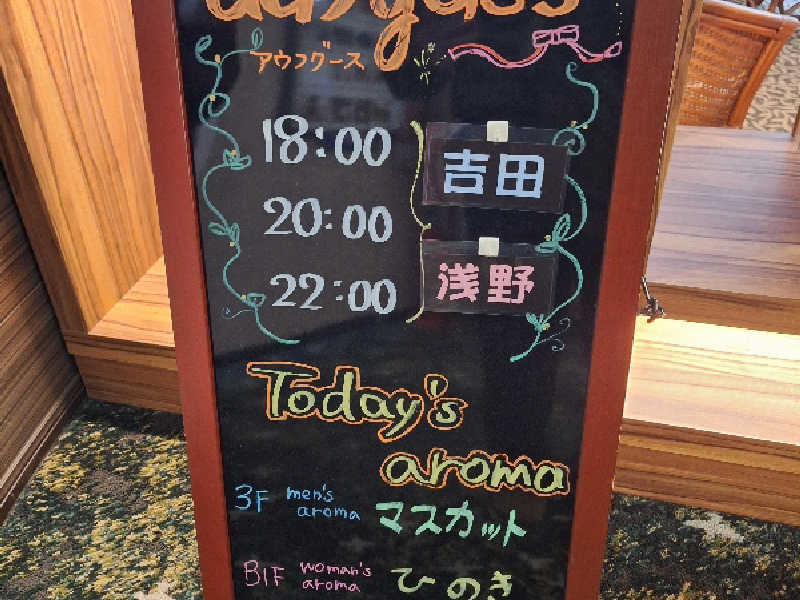 アウフグース
18:00 吉田
20:00
22:00 浅野
Today's
aroma
3F men's aroma マスカット
B1F woman's aroma ひのき